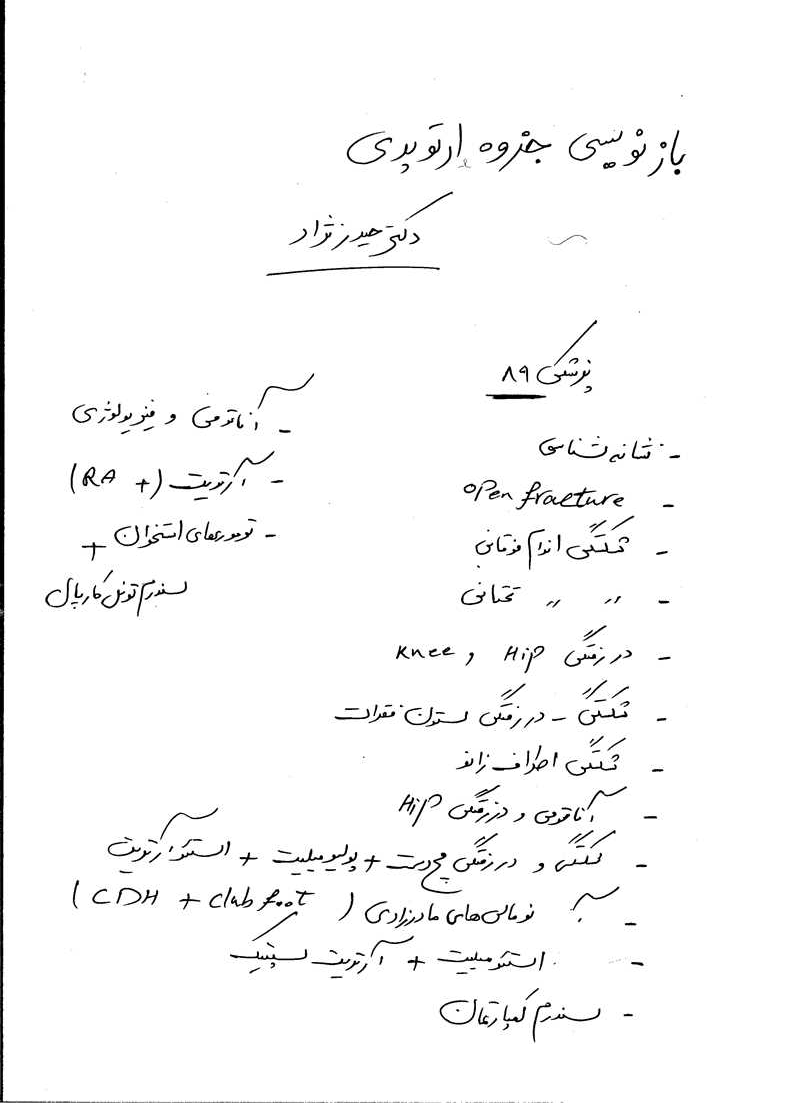 بازنویسی جزوه ارتوپدی
دکتر حیدرنژاد
پزشکی ۸۹
- نشانه شناسی
- open fracture
- شکستگی اندام فوقانی
- 〃 〃 تحتانی
- دررفتگی Hip و knee
- شکستگی - دررفتگی ستون فقرات
- شکستگی اطراف زانو
- آناتومی و دررفتگی Hip
- شکستگی و دررفتگی مچ دست + پولیومیلیت + استئوآرتریت
- آنومالی های مادرزادی (CDH + club foot)
- استئومیلیت + آرتریت سپتیک
- سندرم کمپارتمان
- آناتومی و فیزیولوژی
- آرتریت (+ RA)
- تومورهای استخوان +
سندرم تونل کارپال